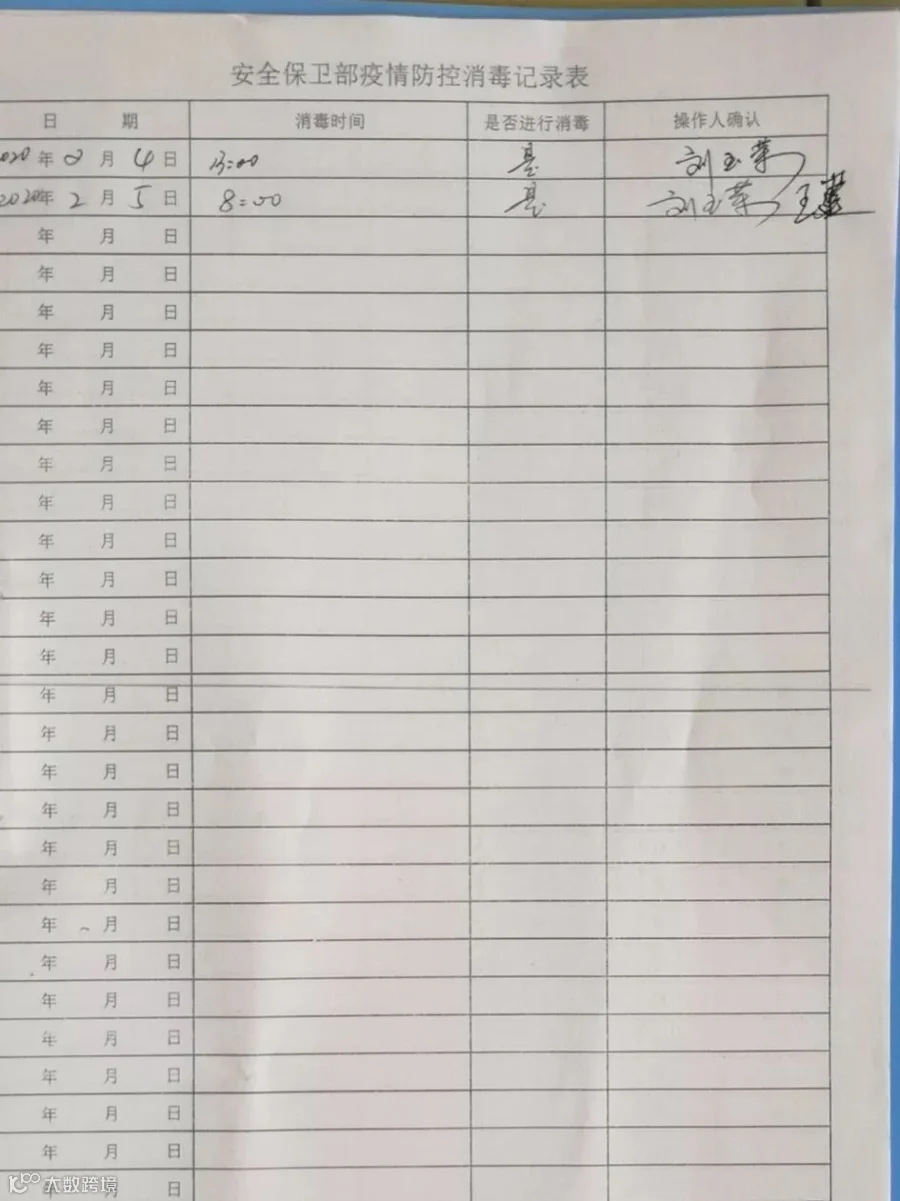 安全保卫部疫情防控消毒记录表
日 期 消毒时间 是否进行消毒 操作人确认
2020年2月4日 13:00 是 刘玉荣
2020年2月5日 8:00 是 刘玉荣 王
年 月 日
年 月 日
年 月 日
年 月 日
年 月 日
年 月 日
年 月 日
年 月 日
年 月 日
年 月 日
年 月 日
年 月 日
年 月 日
年 月 日
年 月 日
年 月 日
年 月 日
年 月 日
年 月 日
年 月 日
年 月 日
年 月 日
年 月 日
年 月 日
年 月 日
年 月 日
大数跨境